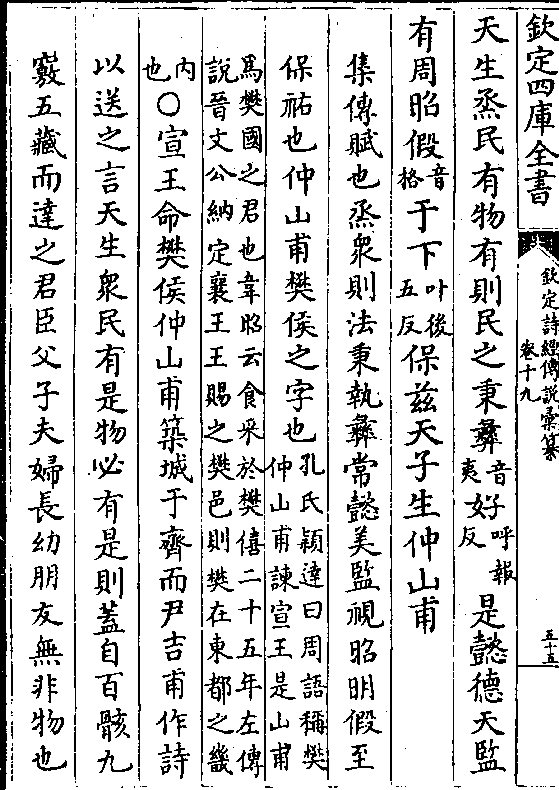 欽定四庫全書
欽定詩經傳說彙纂
卷十九
五十五
天生烝民有物有則民之秉彝音夷好呼報反是懿德天監
有周昭假音格于下叶後五反保茲天子生仲山甫
集傳賦也烝衆則法秉執彝常懿美監視昭明假至
保祐也仲山甫樊侯之字也孔氏穎達曰周語稱樊仲山甫諫宣王是山甫
為樊國之君也韋昭云食采於樊僖二十五年左傳說晉文公納定襄王王賜之樊邑則樊在東都之畿
内也○宣王命樊侯仲山甫築城于齊而尹吉甫作詩
以送之言天生衆民有是物必有是則蓋自百骸九
竅五藏而達之君臣父子夫婦長幼朋友無非物也